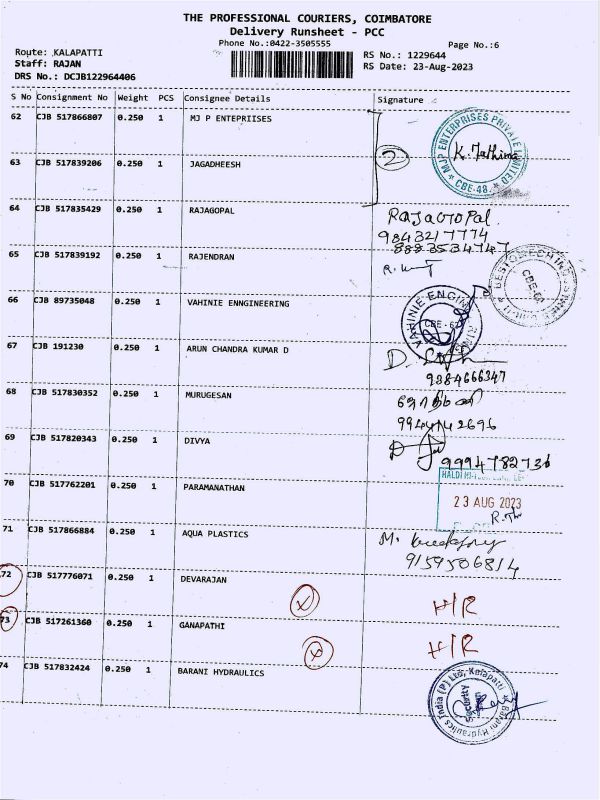 THE PROFESSIONAL COURIERS, COIMBATORE
Delivery Runsheet - PCC
Phone No.:0422-3505555
Page No.:6
Route: KALAPATTI
RS No.: 1229644
Staff: RAJAN
RS Date: 23-Aug-2023
DRS No.: DCJB122964406
S No Consignment No Weight PCS Consignee Details Signature
62 CJB 517866807 0.250 1 MJ P ENTEPRIISES
MJP ENTERPRISES PRIVATE LIMITED
CBE-48
2
63 CJB 517839206 0.250 1 JAGADHEESH
64 CJB 517835429 0.250 1 RAJAGOPAL RAJAGOPAL
9843217774
8883534747
65 CJB 517839192 0.250 1 RAJENDRAN
66 CJB 89735048 0.250 1 VAHINIE ENNGINEERING
VAHINIE ENGINEERING
CBE - 62
67 CJB 191230 0.250 1 ARUN CHANDRA KUMAR D
9384666347
68 CJB 517830352 0.250 1 MURUGESAN
9944142696
69 CJB 517820343 0.250 1 DIVYA
9994782736
70 CJB 517762201 0.250 1 PARAMANATHAN
23 AUG 2023
71 CJB 517866884 0.250 1 AQUA PLASTICS
9159506814
72 CJB 517776071 0.250 1 DEVARAJAN X H/R
73 CJB 517261360 0.250 1 GANAPATHI X H/R
74 CJB 517832424 0.250 1 BARANI HYDRAULICS
Barani Hydraulics India (P) Ltd, Kalapatti
Security